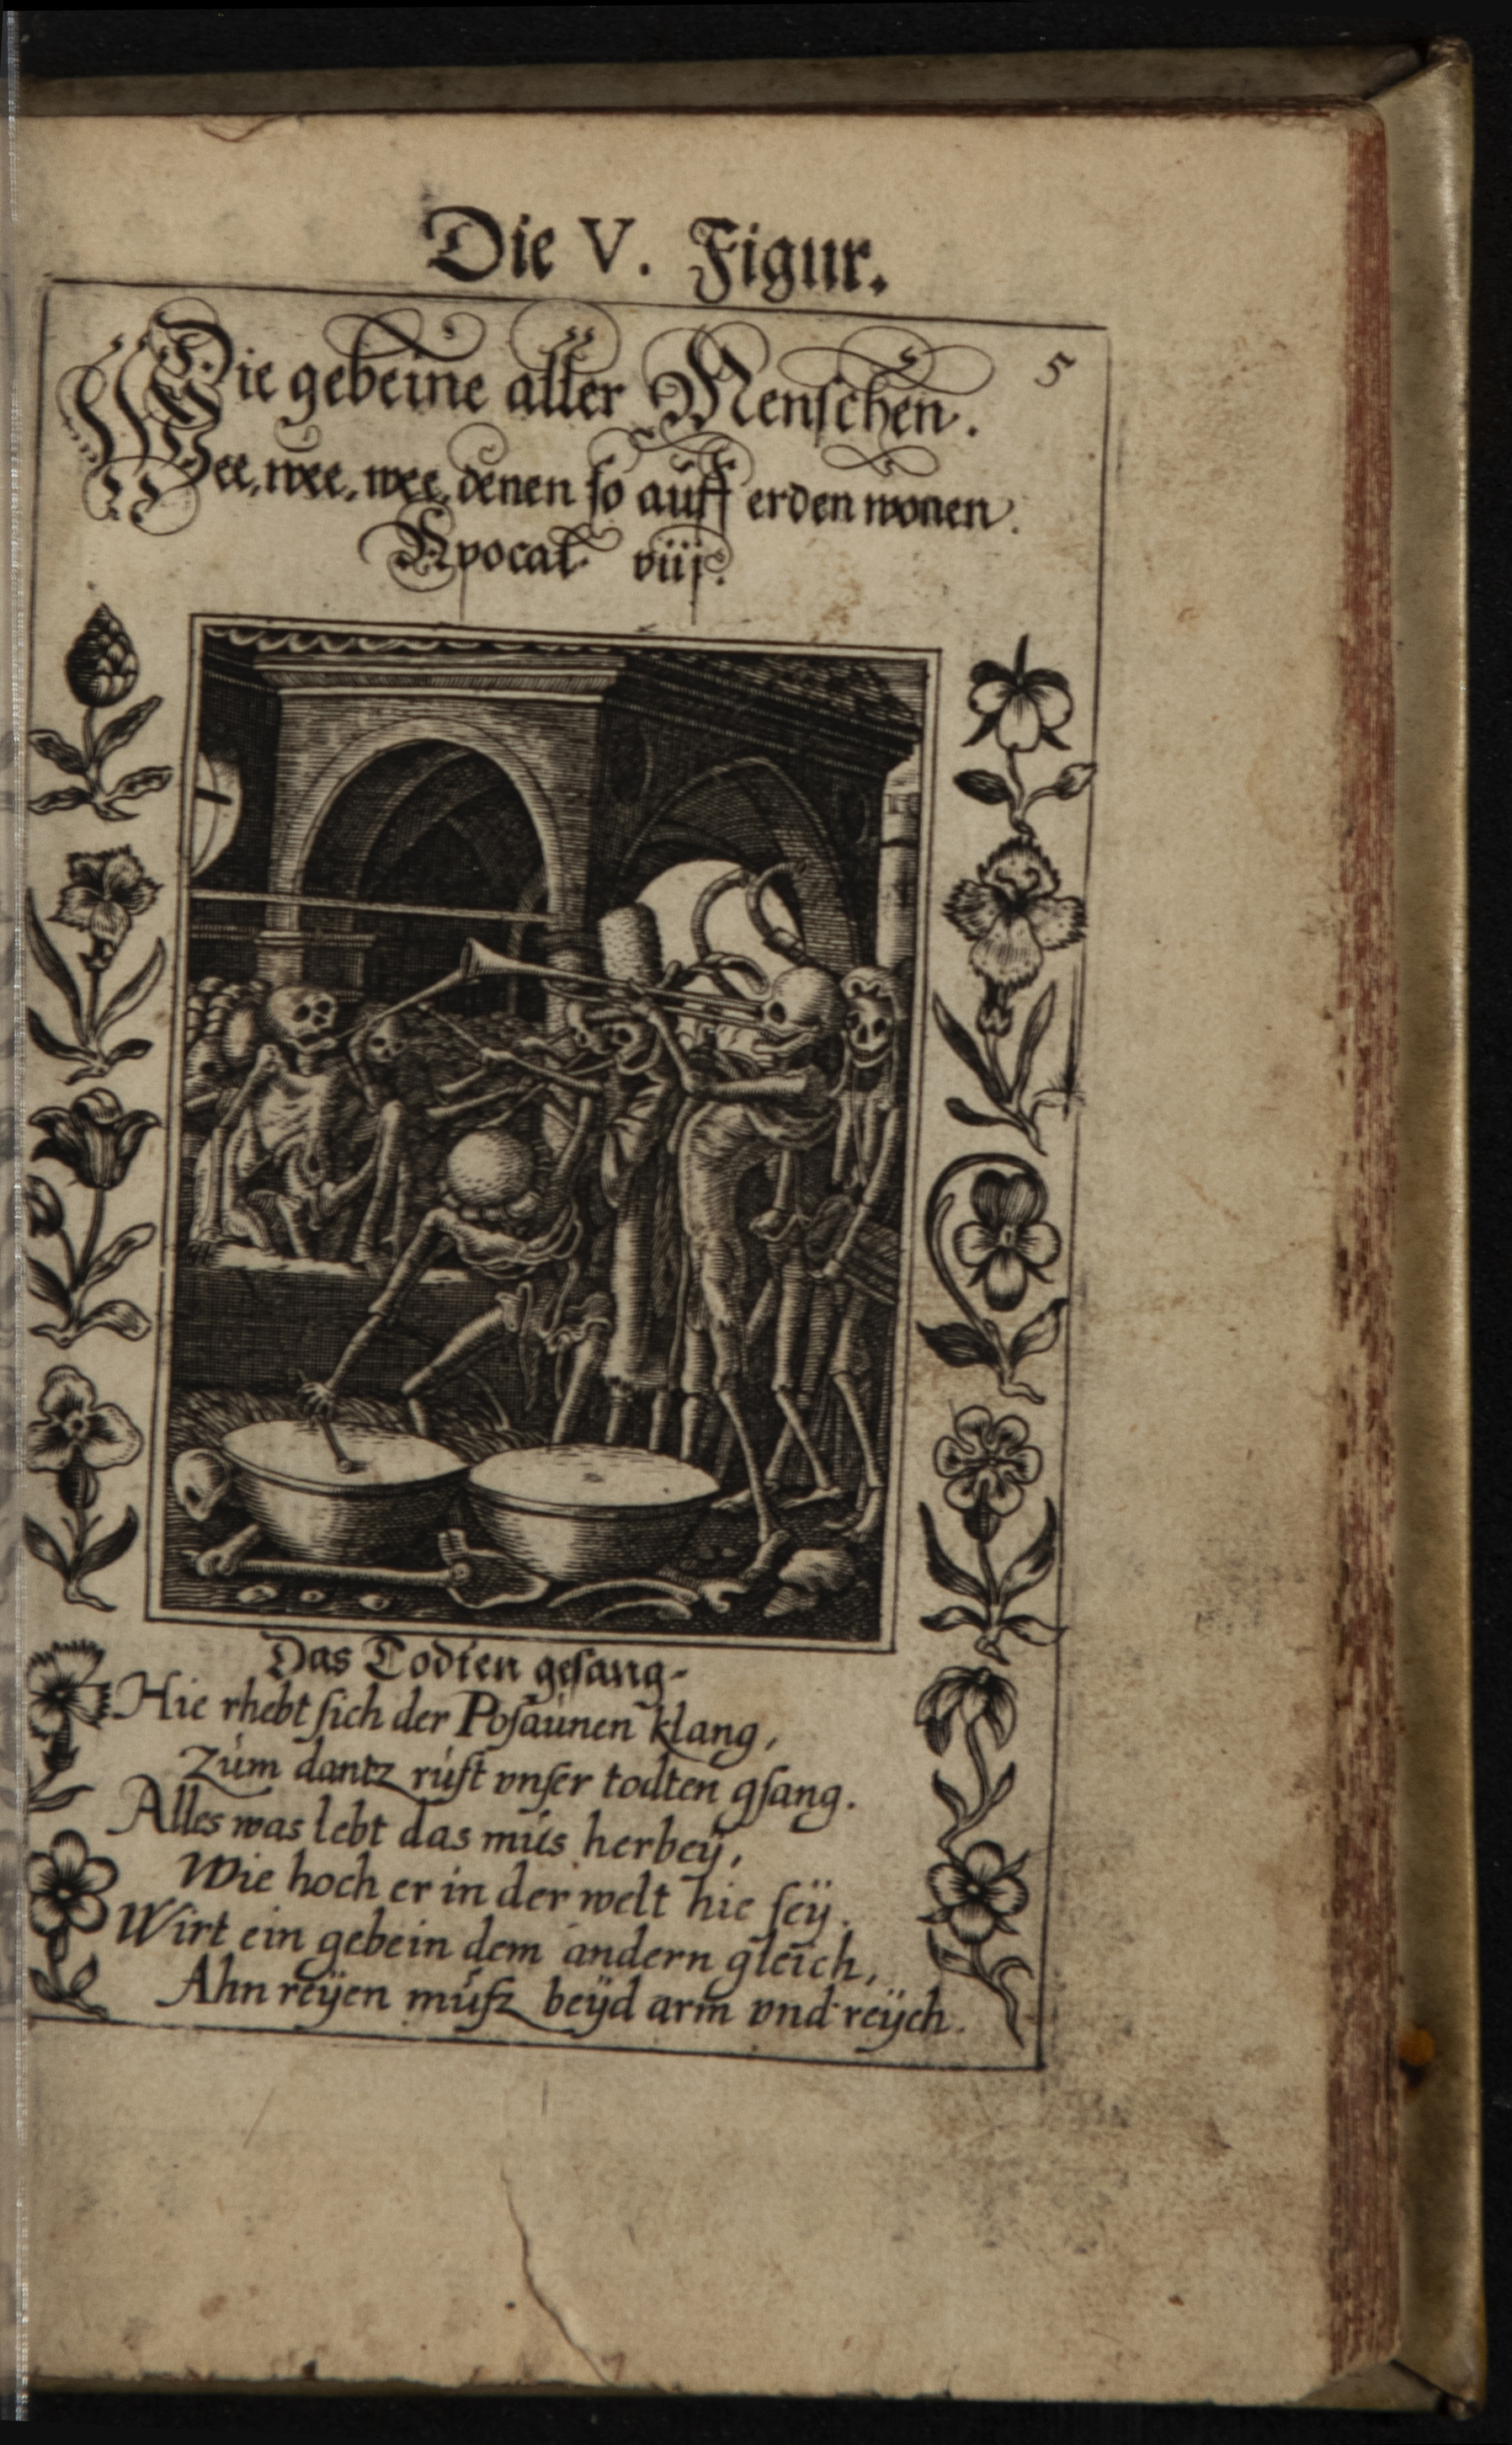 Die V. Figur.
5
Die gebeine aller Menschen.
Wee, wee, wee, denen so auff erden wonen.
Apocal. viij.
Das Todten gesang.
Hie rhebt sich der Posaunen klang,
Zum dantz rúft vnser todten gsang.
Alles was lebt das mús herbeÿ,
Wie hoch er in der welt hie seÿ.
Wirt ein gebein dem andern gleich,
Ahn reÿen músz beÿd arm vnd reÿch.